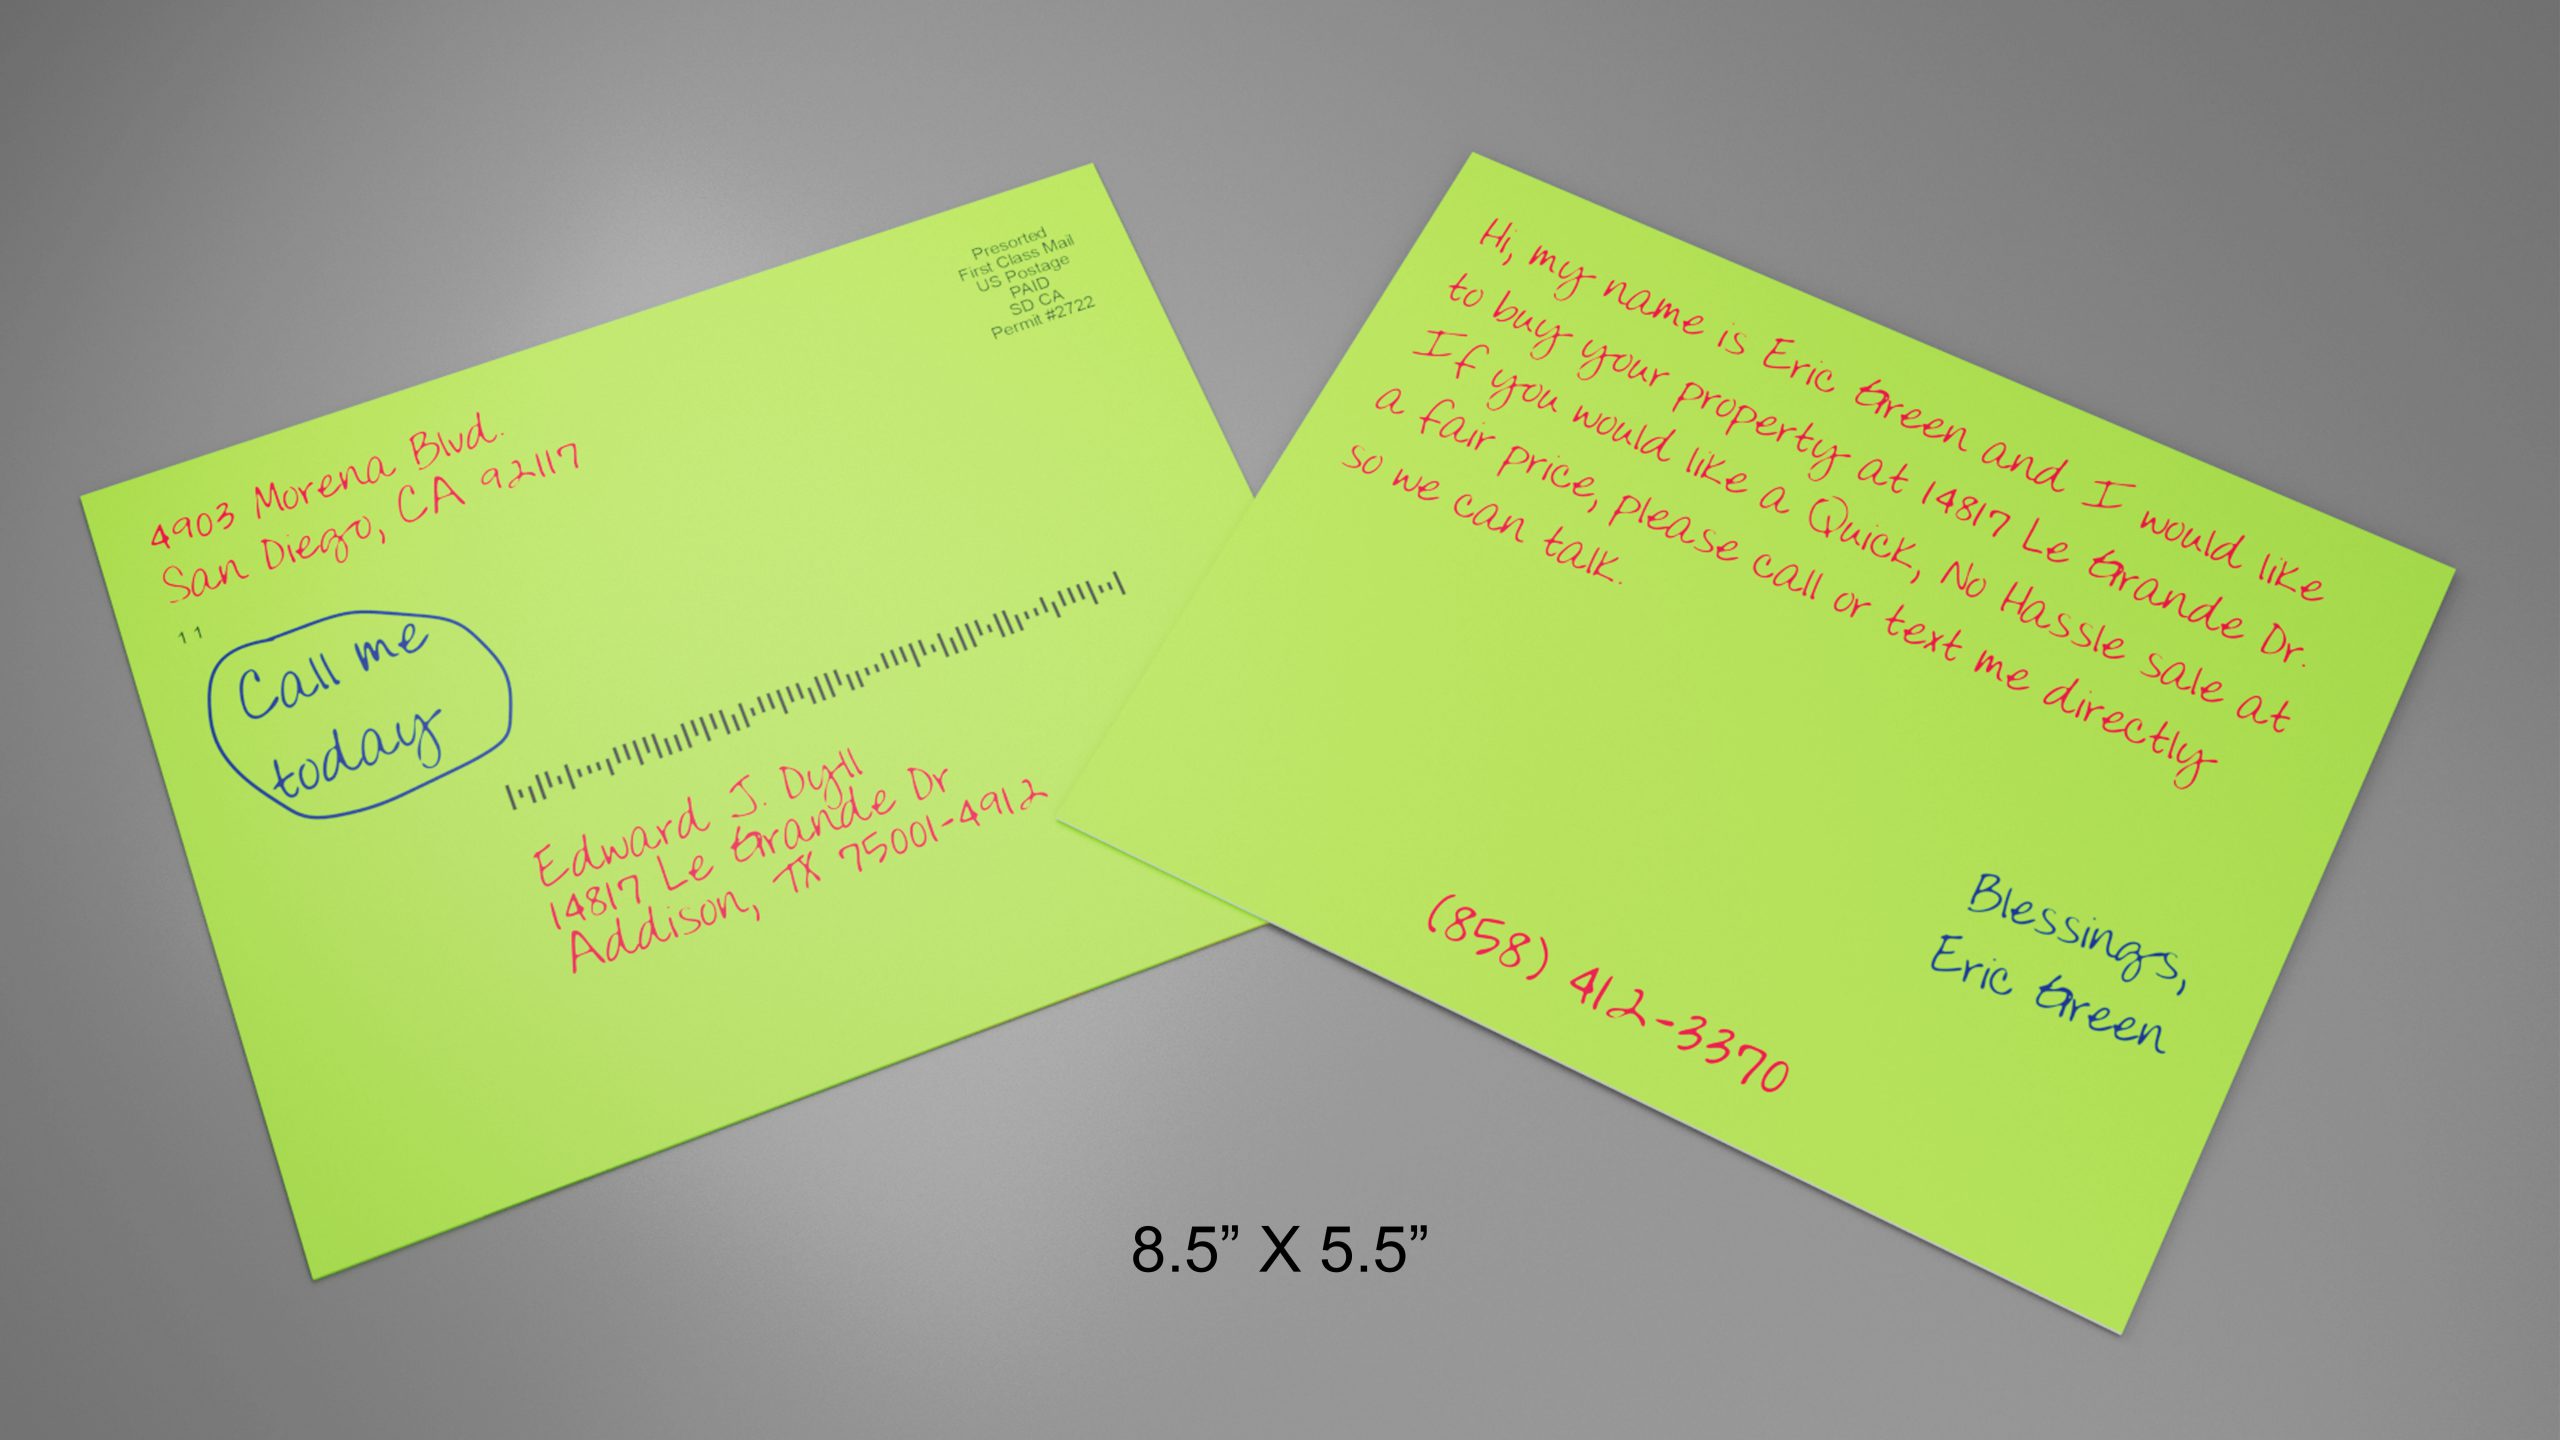 Presorted
First Class Mail
US Postage
PAID
SD CA
Permit #2722
4903 Morena Blvd.
San Diego, CA 92117
11
Call me
today
Edward J. Dyll
14817 Le Grande Dr
Addison, TX 75001-4912
Hi, my name is Eric Green and I would like
to buy your property at 14817 Le Grande Dr.
If you would like a Quick, No Hassle sale at
a fair price, please call or text me directly
so we can talk.
Blessings,
Eric Green
(858) 412-3370
8.5” X 5.5”